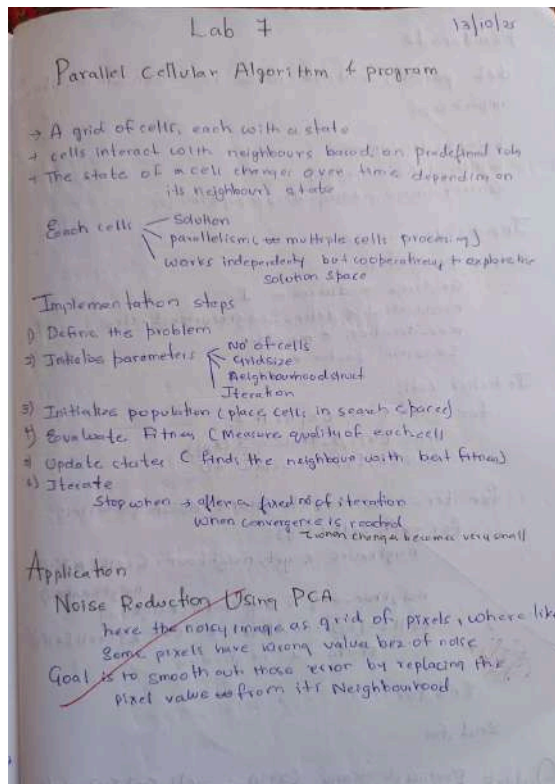 Lab 7
13/10/25
Parallel Cellular Algorithm & program
→ A grid of cells, each with a state
→ cells interact with neighbours based on predefined
→ The state of a cell changes over time depending on
its neighbours state
Each cells
Solution
parallelism ( multiple cells processing)
works independently but cooperatively to explore the
solution space
Implementation steps
1) Define the problem
2) Initialize parameters
No of cells
Gridsize
Neighbourhood struct
Iteration
3) Initialize population (place cells in search space)
4) Evaluate Fitness (Measure quality of each cell
5) Update states ( finds the neighbour with best fitness)
6) Iterate
Stop when → after a fixed no of iteration
when convergence is reached
when change becomes very small
Application
Noise Reduction Using PCA
here the noisy image as grid of pixels, where like
Some pixels have wrong value bcz of noise
Goal is to smooth out those error by replacing the
pixel value from its Neighbourhood